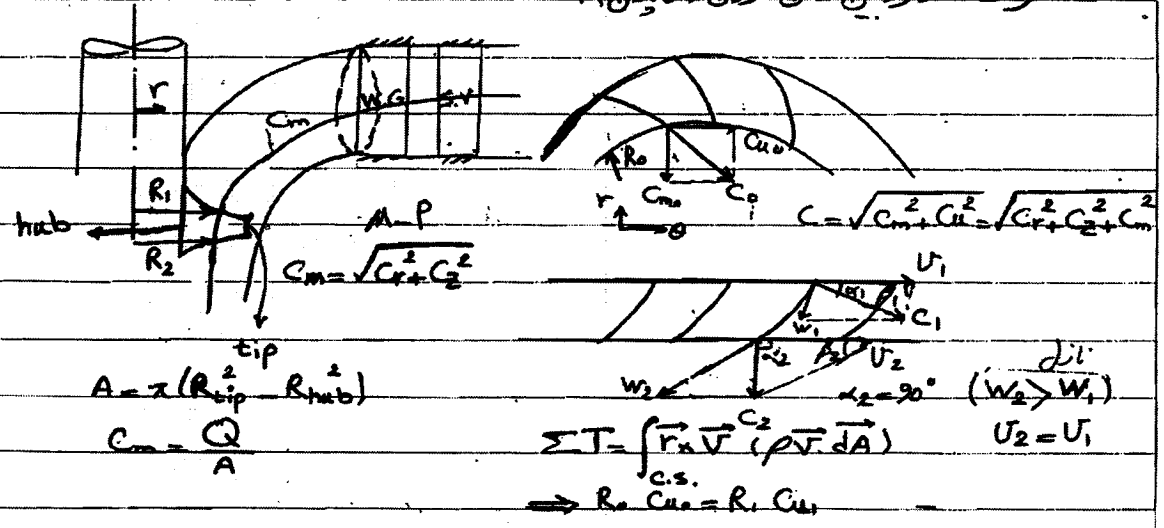 r
W.G
S.V
Cm
R₁
hub
R₂
M-P
Cm = √(Cr² + Cz²)
tip
A = π(R²tip - R²hub)
Cm = Q/A
R₀
Cu₀
Cm₀
C₀
r
θ
C = √(Cm² + Cu²) = √(Cr² + Cz² + Cm²)
U₁
α₁
W₁
C₁
α₂
β₂
U₂
W₂
C₂
α₂ = 90°
(W₂ > W₁)
U₂ = U₁
ΣT = ∫c.s. r⃗ × V⃗ (ρV⃗.dA⃗)
⟹ R₀ Cu₀ = R₁ Cu₁